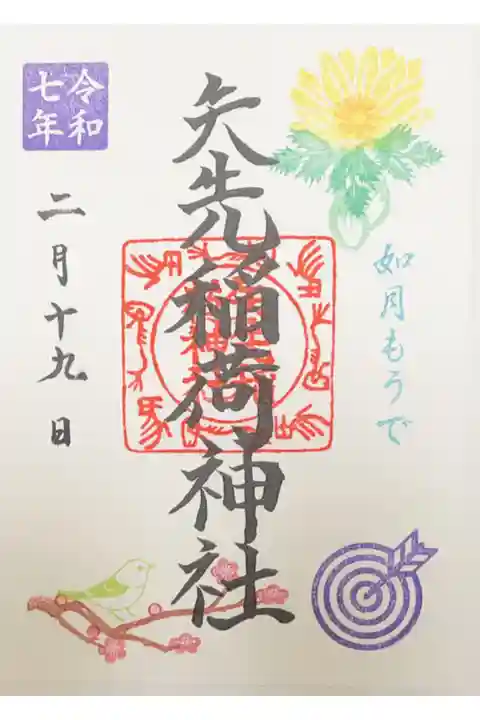 如月もうで
矢先稲荷神社
令和
七年
二月十九日